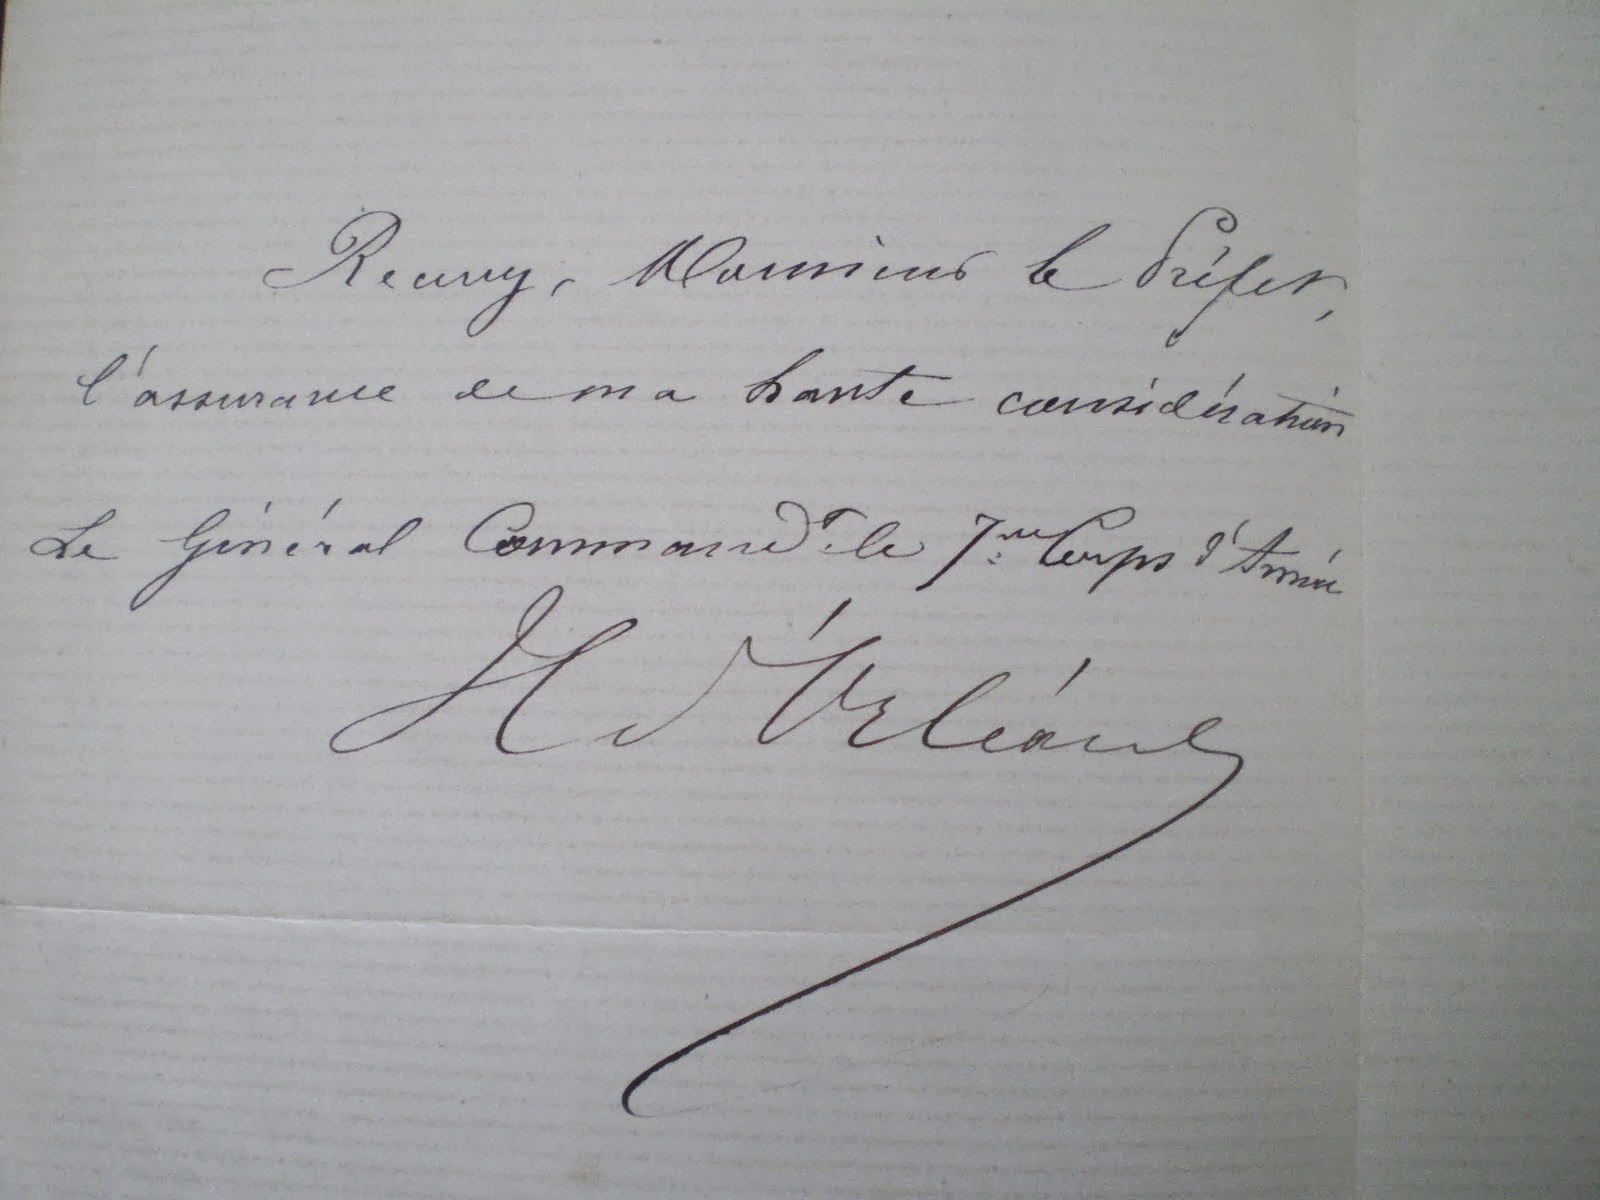 Recevez, Monsieur le Préfet,
l'assurance de ma haute considération
Le Général Commandt le 7me Corps d'Armée
H d'Orléans